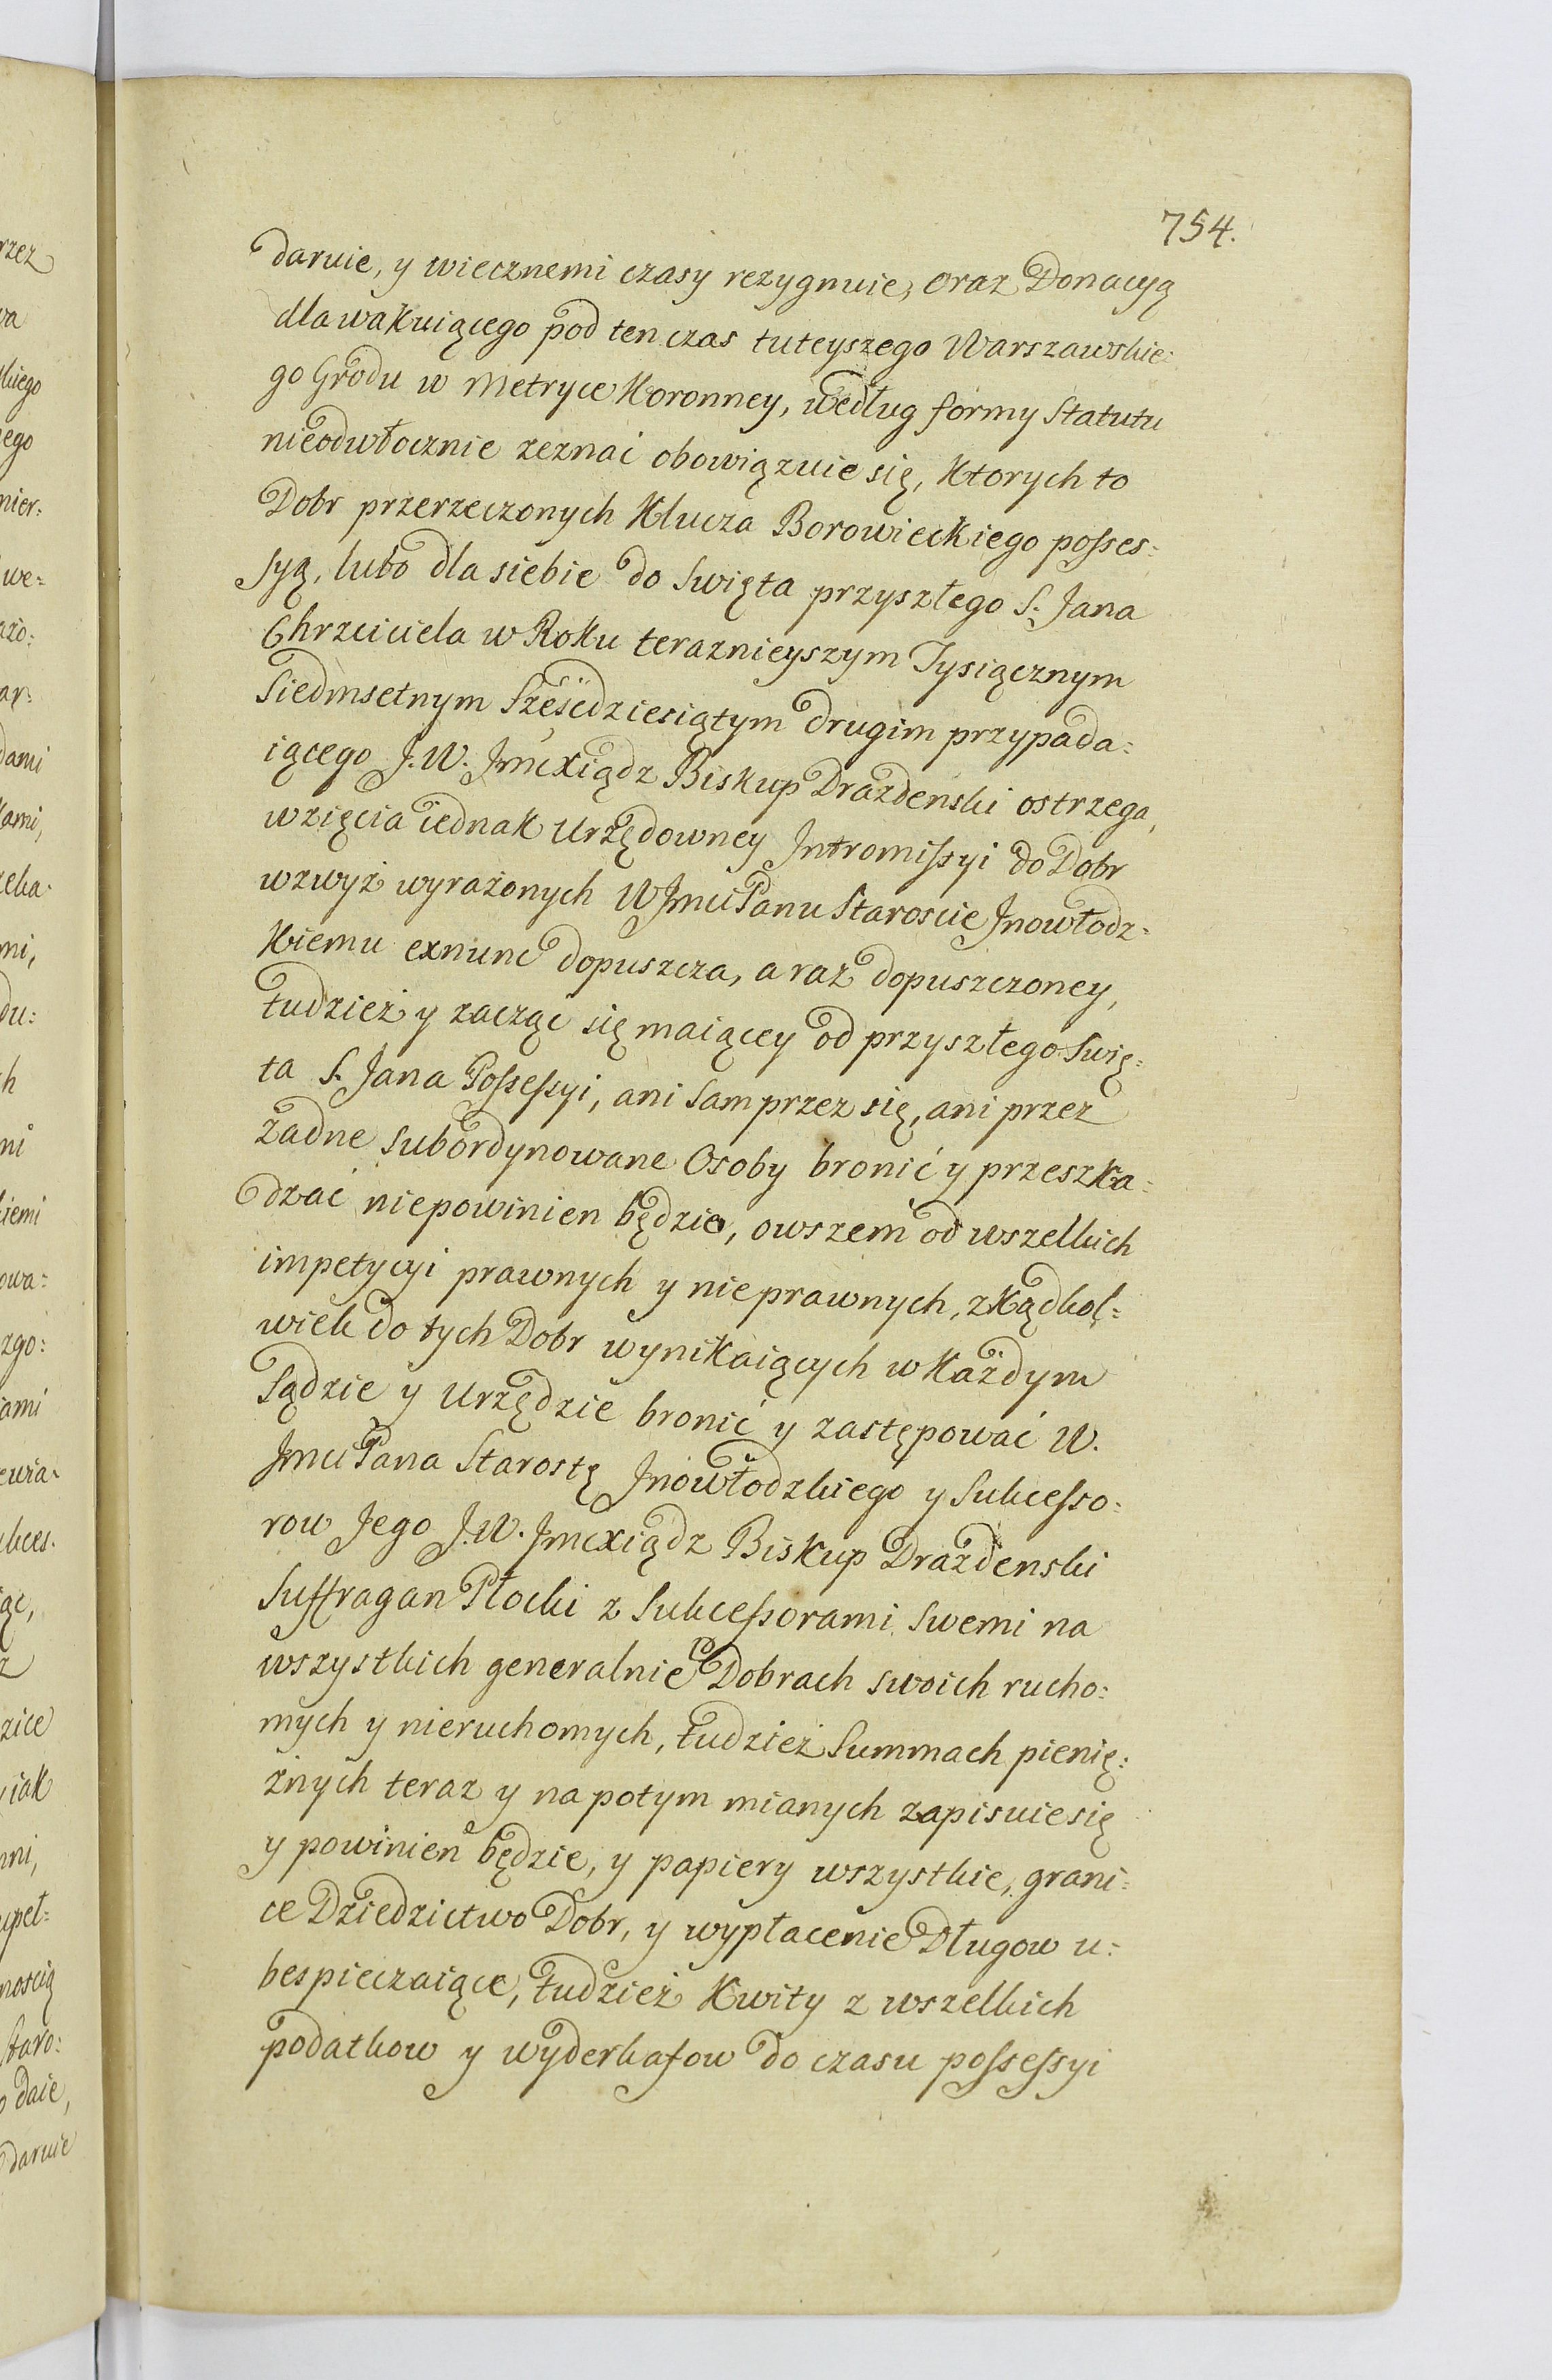 754.
daruie, y wiecznemi czasy rezygnuie, oraz Donacyą
dla wakuiącego pod ten czas tuteyszego Warszawskie:
go Grodu w Metryce Koronney, według formy Statutu
nieodwłocznie zeznać obowiązuie się, ktorych to
Dobr przerzeczonych Klucza Borowieckiego posses:
syą, lubo dla siebie do Swięta przyszłego S. Jana
Chrzciciela w Roku teraznieyszym Tysiącznym
Siedmsetnym Sześćdziesiątym drugim przypada:
iącego J. W. Jmcxiądz Biskup Drazdenski ostrzega,
wzięcia iednak Urzędowney Intromissyi do Dobr
wzwyż wyrażonych W Jmci Panu Staroscie Inowłodz:
kiemu exnunc dopuszcza, a raz dopuszczoney,
tudzież y zacząc się maiącey od przyszłego Swię:
ta S. Jana Possessyi, ani sam przez się, ani przez
żadne subordynowane Osoby bronić y przeszka:
dzać niepowinien będzie, owszem od wszelkich
impetycyi prawnych y nieprawnych, zkądkol:
wiek do tych Dobr wynikaiących w każdym
Sądzie y Urzędzie bronić y zastępować W.
Jmci Pana Starostę Inowłodzkiego y Sukcesso:
row Jego J. W. Jmcxiądz Biskup Drazdenski
Suffragan Płocki z Sukcessorami Swemi na
wszystkich generalnie Dobrach swoich rucho:
mych y nieruchomych, tudzież Summach pienię:
żnych teraz y na potym mianych zapisuie się
y powinien będzie, y papiery wszystkie, grani:
ce Dziedzictwo Dobr, y wypłacenie Długow u:
bespieczaiące, tudzież Kwity z wszelkich
podatkow y wyderkafow do czasu possessyi
rzez
va
ego
nier:
we:
ar:
dami
kami,
mi,
du:
h
ni
kiemi
owa:
zgo:
iami
ewia:
ukces:
ąc,
z
zice
iak
nni,
upeł:
nością
Staro:
daie,
daruie